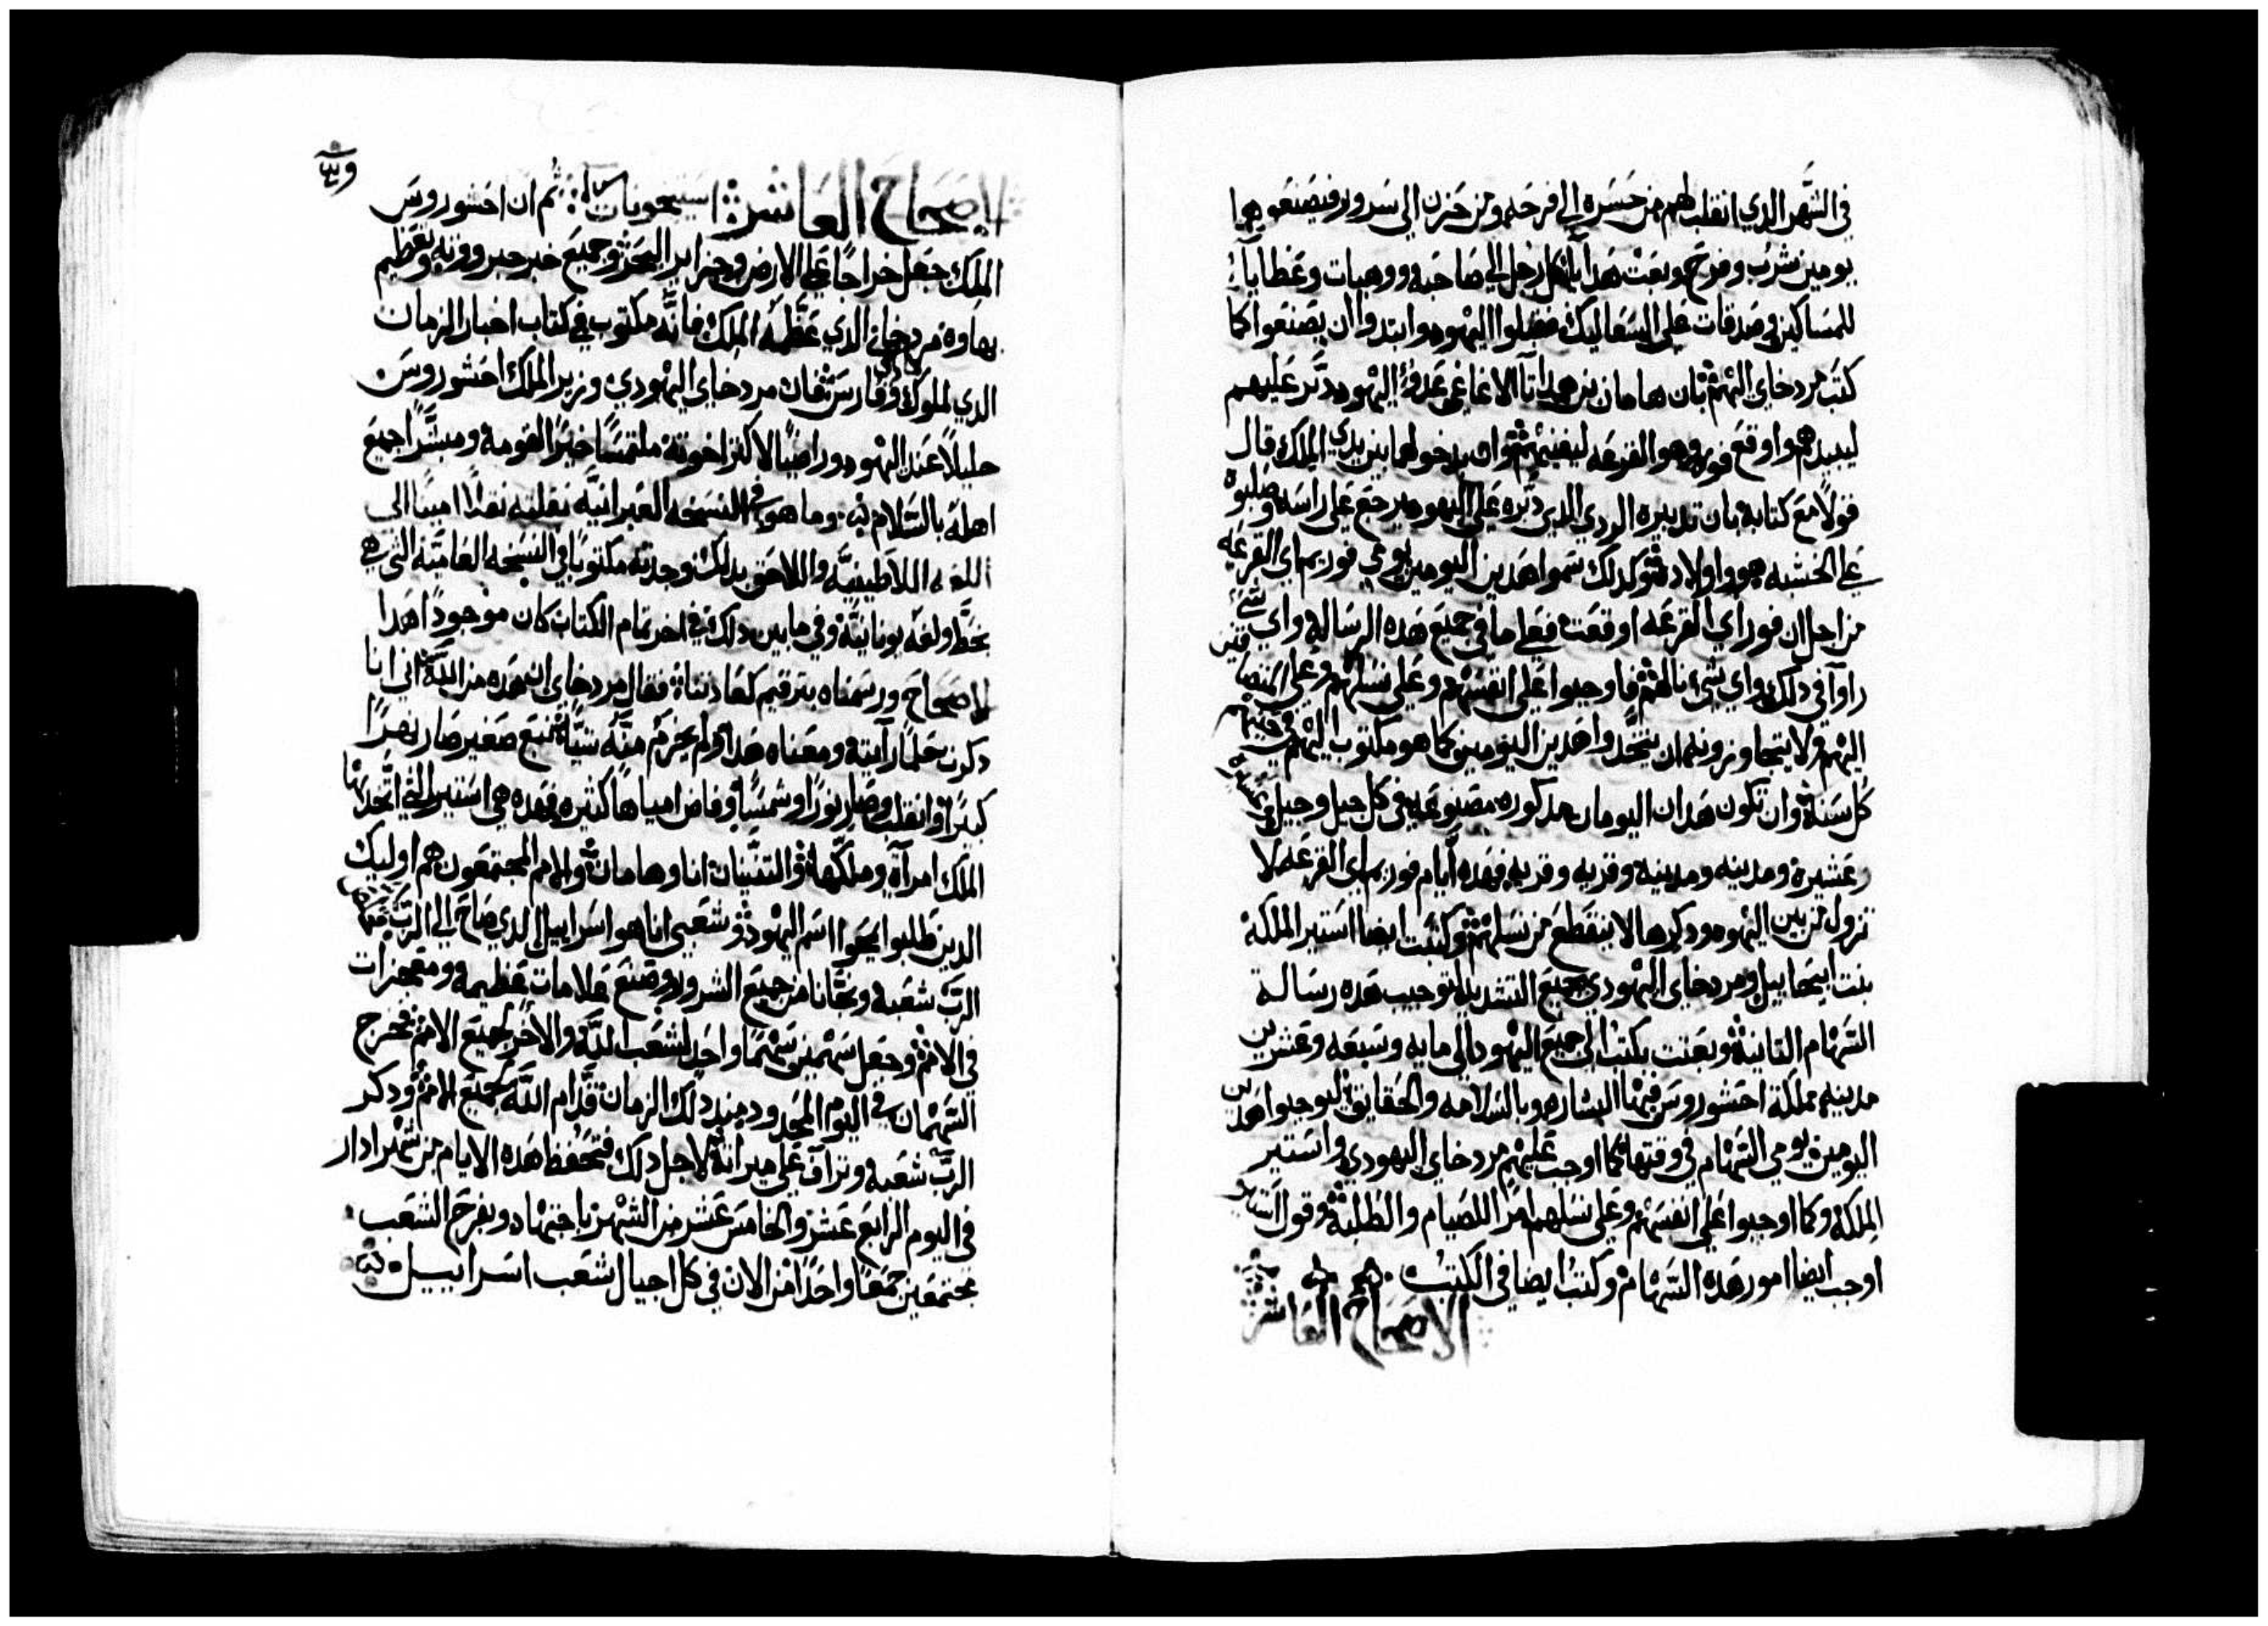 في الشهر الدي انقلب لهم من حسره الي فرحه ومن حزن الي سرور فيصنعوها
يومين شرب وفرح وبعت هدايا كل رجل الي صاحبه ووهبات وعطايا
للمساكين وصدقات علي السعاليك فقبلوا اليهود وابتدوا ان يصنعوا كما
كتب مردخاي اليهم بان هامان بن همداتا الاغاغي عدو اليهود دبر عليهم
ليبيدهم واوقع فور وهو القرعه ليفنيهم وان بدخولها بين يدي الملك قال
قولا مع كتابة بان تدبيره الردي الدي دبره علي اليهود يرجع علي راسه وصلبوه
علي الخشبه هو واولاده وكدلك سموا هدين اليومين يومي فوريم اي القرعه
من اجل ان فور اي القرعه اوقعت فعلي ما في جميع هده الرساله واي شي
راوا في دلك واي شي نالهم فاوجبوا علي انفسهم وعلي نسلهم وعلي المنضافين
اليهم ولا يتجاوزونه ان يتخدوا هدين اليومين كما هو مكتوب اليهم في حينهم
كل سنة وان تكون هدان اليومان مدكوره مصنوعه في كل جيل وجيل
وعشيرة ومدينه ومدينه وقريه وقريه فهده ايام فوريم اي القرعه لا
تزول من بين اليهود ودكرها لا ينقطع من نسلهم وكتبت ايضا استير الملكه
بنت ابيحاييل ومردخاي اليهودي جميع التشديد لتوجيب هده رسالة
السهام التانية وبعتت بكتب الي جميع اليهود الي مايه وسبعه وعشرين
مدينه مملكة احشوروس فيها البشاره وبالسلامه والحقايق ليوجبوا هدين
اليومين يومي السهام في وقتها كما اوجب عليهم مردخاي اليهودي واستير
الملكة وكما اوجبوا علي انفسهم وعلي نسلهم امر الصيام والطلبة وقول استير
اوجب ايضا امور هده السهام وكتب ايضا في الكتب
الاصحاح العاشر
الاصحاح العاشر ثم ان احشوروس
الملك جعل خراجا علي الارض وجزاير البحر وجميع خبر جبرووته وتعظيم
بهاوه مردخاي الدي عظمه الملك فانه مكتوب في كتاب اخبار الزمان
الدي لملوك وفارس فان مردخاي اليهودي وزير الملك احشوروس
جليلا عند اليهود وراضيا لاكتر اخوته ملتمسا خيرا لقومه ومبشرا جميع
اهله بالسلام وما هو في النسخه العبرانيه نقلته نقلا امينا الي
اللغه اللاطينيه واللاحق بدلك وجدته مكتوبا في النسخه العاميه التي هي
بخط ولغه يونانية وفي ما بين دلك في اخر تمام الكتاب كان موجودا هدا
الاصحاح ورسمناه بترقيم كعادتنا فقال مردخاي ان هده من الله اني انا
دكرت حلما رايته ومعناه هدا ولم يخرم منه شيا نبع صغير صار نهرا
كبيرا وانقلب وصار نورا وشمسا وفاض امياها كتيره فهده هي استير التي اتخدها
الملك امراة وملكها والتنينان انا وهامان والامم المجتمعون هم اوليك
الدين طلبوا يمحوا اسم اليهود وشعبي انا هو اسراييل الدي صاح الي الرب
الرب شعبه ونجانا من جميع الشرور وصنع علامات عظيمه ومعجزات
في الامم وجعل سهمين سهما واحد لشعب الله والاخر لجميع الامم فخرج
السهمان في اليوم المحدود منذ دلك الزمان قدام الله لجميع الامم ودكر
الرب شعبه وتراف علي ميراته لاجل دلك فتحفظ هده الايام من شهر ادار
في اليوم الرابع عشر والخامس عشر من الشهر باجتهاد وبفرح الشعب
مجتمعين جمعا واحدا من الان في كل اجيال شعب اسراييل